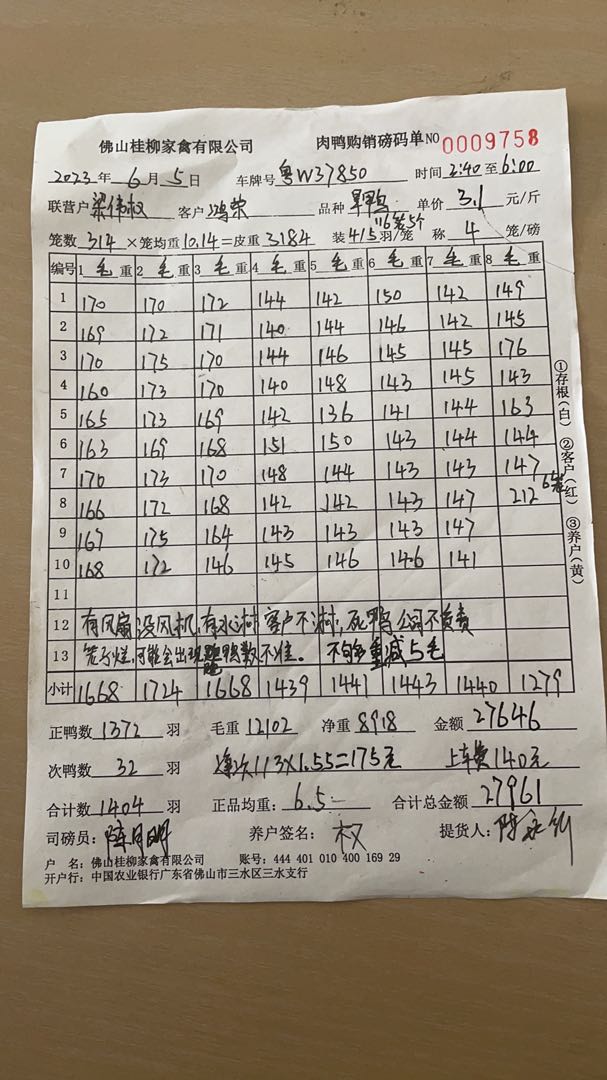 佛山桂柳家禽有限公司 肉鸭购销磅码单 NO 0009758
2023年6月5日 车牌号 粤W37850 时间 2:40 至 6:00
联营户 梁伟权 客户 鸿荣 品种 旱鸭 单价 3.1 元/斤
116笼5个
笼数 314 ×笼均重 10.14=皮重 3184 装 4/5 羽/笼 称 4 笼/磅
编号 1 毛重 2 毛重 3 毛重 4 毛重 5 毛重 6 毛重 7 毛重 8 毛重
1 170 170 172 144 142 150 142 149
2 169 172 171 140 144 146 142 145
3 170 175 170 144 146 145 145 176
4 160 173 170 140 148 143 145 143
5 165 173 169 142 136 141 144 163
6 163 169 168 151 150 143 144 144
7 170 173 170 148 144 143 143 147
8 166 172 168 142 142 143 147 212 6笼
9 167 175 164 143 143 143 147
10 168 172 146 145 146 146 141
11
12 有风扇没风机,有水淋客户不淋,死鸭公司不负责
13 笼子烂,可能会出现跑鸭数不准。 不够重减5毛
小计 1668 1724 1668 1439 1441 1443 1440 1279
正鸭数 1372 羽 毛重 12102 净重 8918 金额 27646
次鸭数 32 羽 次113×1.55=175元 上车费140元
合计数 1404 羽 正品均重: 6.5 合计总金额 27961
司磅员: 陈月明 养户签名: 权 提货人: 陈
户 名: 佛山桂柳家禽有限公司 账号: 444 401 010 400 169 29
开户行: 中国农业银行广东省佛山市三水区三水支行
①存根(白) ②客户(红) ③养户(黄)